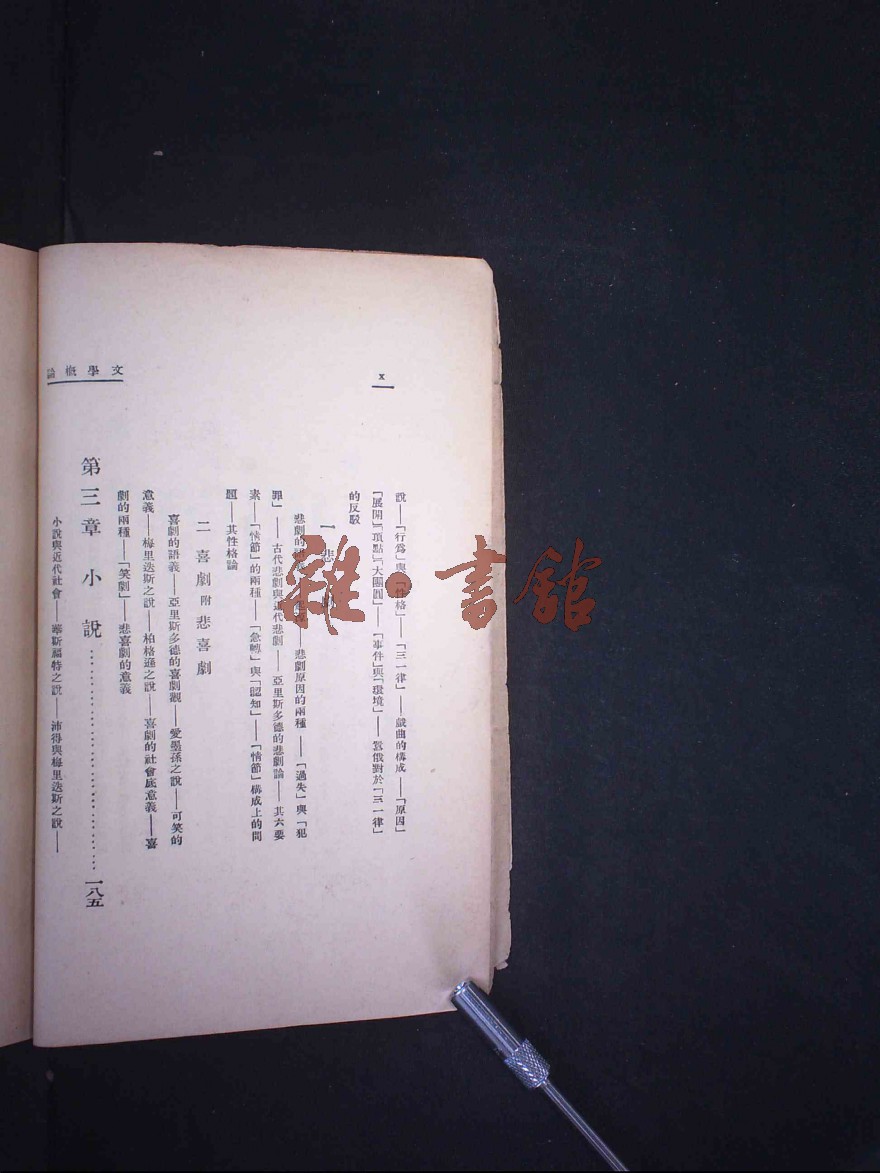 文學概論
x
說——「行爲」與「性格」——「三一律」——戲曲的構成——「原因」
「展開」「頂點」「大團圓」——「事件」與「環境」——囂俄對於「三一律」
的反駁
一 悲劇
悲劇的 —— 悲劇原因的兩種——「過失」與「犯
罪」——古代悲劇與近代悲劇——亞里斯多德的悲劇論——其六要
素——「情節」的兩種——「急轉」與「認知」——「情節」構成上的問
題——其性格論
二 喜劇 附 悲喜劇
喜劇的語義——亞里斯多德的喜劇觀——愛墨孫之說——可笑的
意義——梅里迭斯之說——柏格遜之說——喜劇的社會底意義——喜
劇的兩種——「笑劇」——悲喜劇的意義
第三章 小說……………………一八五
小說與近代社會——華斯福特之說——沛得與梅里迭斯之說——
雜·書館